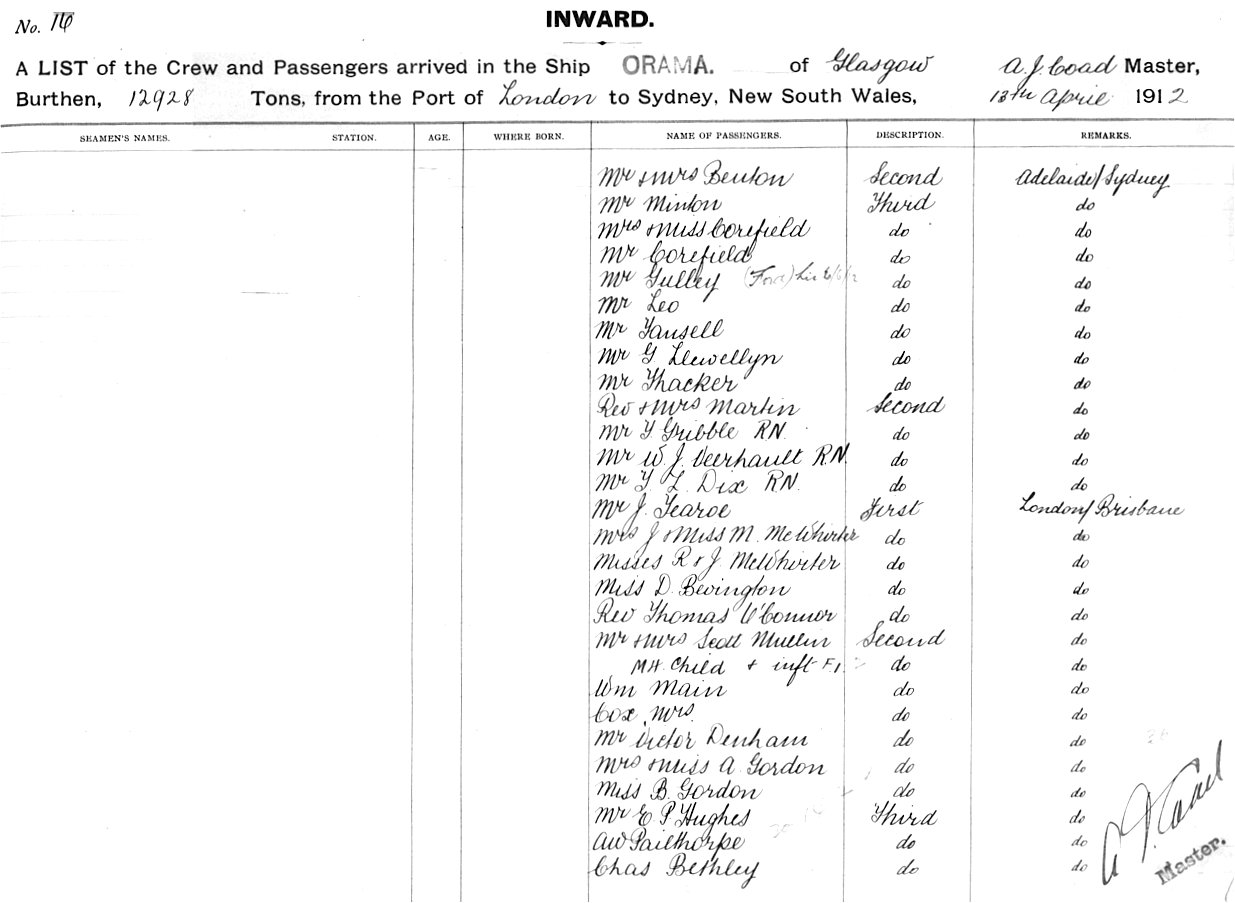 No. 16
INWARD.
A LIST of the Crew and Passengers arrived in the Ship ORAMA. of Glasgow A. J. Coad Master,
Burthen, 12928 Tons, from the Port of London to Sydney, New South Wales, 13th April 1912
SEAMEN'S NAMES. STATION. AGE. WHERE BORN. NAME OF PASSENGERS. DESCRIPTION. REMARKS.
Mr & Mrs Benton Second Adelaide/Sydney
Mr Minton Third do
Mrs & Miss Corefield do do
Mr Corefield do do
Mr Gulley do do
Mr Leo do do
Mr Fansell do do
Mr G. Llewellyn do do
Mr Thacker do do
Rev & Mrs Martin Second do
Mr Gribble RN. do do
Mr W. J. Veerhault R.N. do do
Mr Dix RN. do do
Mr J. Fearoe First London/Brisbane
Mrs J & Miss M. McWhirter do do
Misses R & J. McWhirter do do
Miss D. Bevington do do
Rev Thomas O'Connor do do
Mr & Mrs Scott Mullin Second do
MH. Child & inft F1. do do
Wm Main do do
Cox, Mrs. do do
Mr Victor Denham do do
Mrs & Miss A. Gordon do do
Miss B. Gordon do do
Mr E. P. Hughes Third do
AW Pailthorpe do do
Chas Bethley do do
A J. Coad
Master.